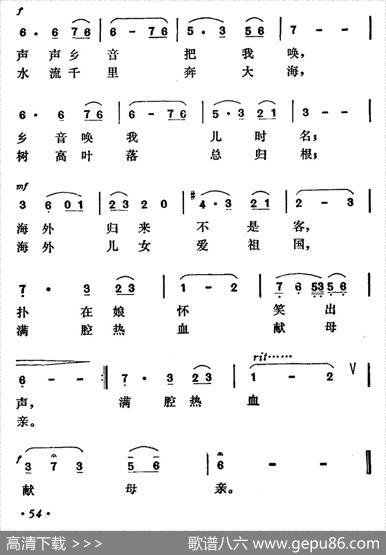 f
6· 6 76 | 6 - 76 | 5· 3 56 | 7 - - |
声 声乡 音 把 我 唤,
水 流千 里 奔 大 海,
6· 6 76 | 6 - 76 | 5· 3 21 | 3 - - |
乡 音唤 我 儿 时 名;
树 高叶 落 总 归 根;
mf
3 6 01 | 23 20 | #4· 3 21 | 2 - 3 |
海 外 归 来 不 是 客,
海 外 儿 女 爱 祖 国,
7· 3 23 | 1 - 2 | 76 53 56 |
扑 在 娘 怀 笑 出
满 腔 热 血 献 母
rit······
6 - - :‖ 7· 3 23 | 1 - 2 V |
声, 满 腔 热 血
亲。
f
3 7 3 | 5 6 | 6 - - ‖
献 母 亲。
· 54 ·
高清下载 > > 高清
歌谱八六 www.gepu86.com